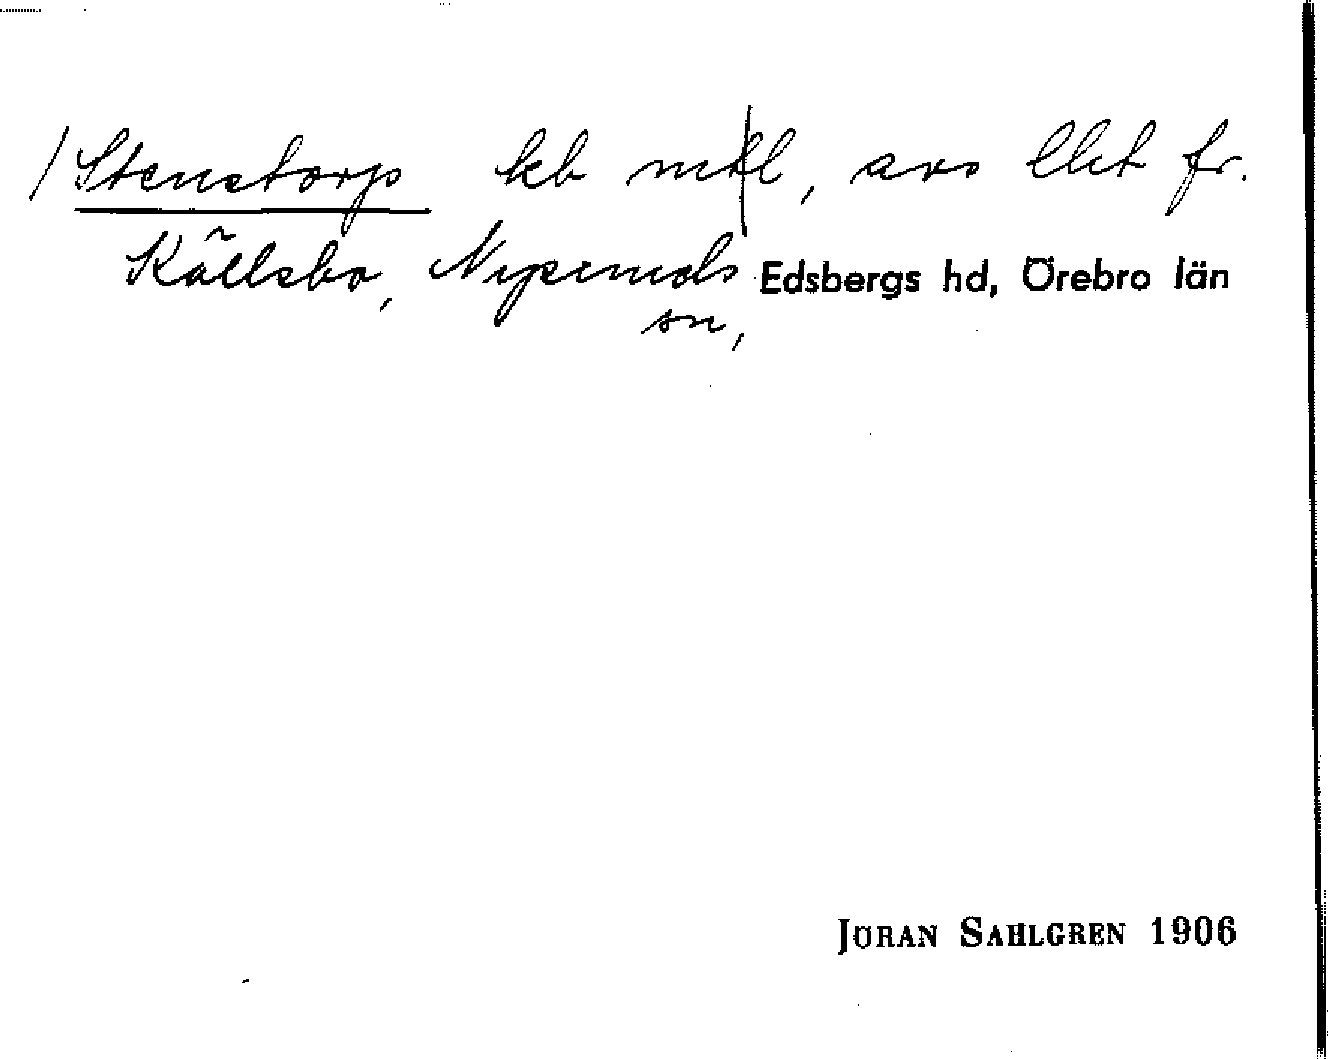 / Stenstorp kb mtl, avs lht fr.
Källsbo, Nysunds Edsbergs hd, Örebro län
sn,
JÖRAN SAHLGREN 1906